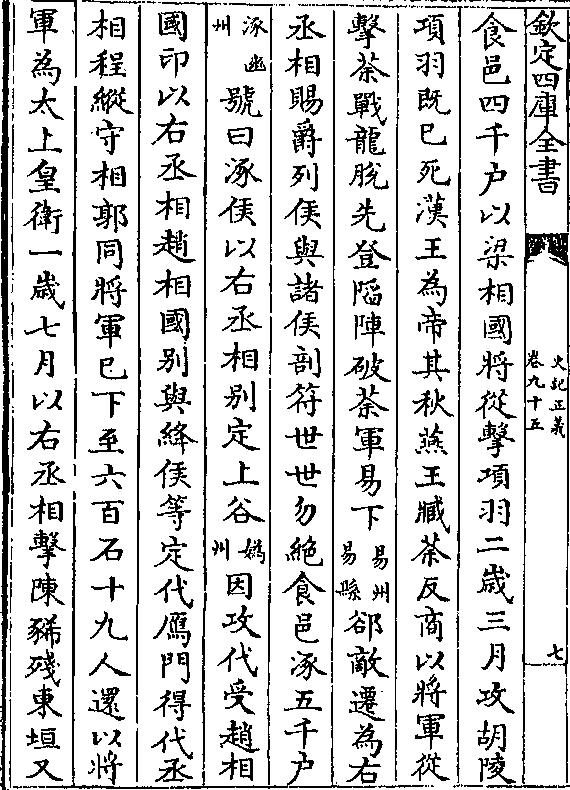 欽定四庫全書
史記正義
卷九十五
七
食邑四千户以梁相國將從擊項羽二歲三月攻胡陵
項羽既已死漢王為帝其秋燕王臧荼反商以將軍從
擊荼戰龍脫先登陷陣破荼軍易下易州易縣郤敵遷為右
丞相賜爵列侯與諸侯剖符世世勿絶食邑涿五千户
涿幽州號曰涿侯以右丞相别定上谷媯州因攻代受趙相
國印以右丞相趙相國别與絳侯等定代鴈門得代丞
相程縱守相郭同將軍已下至六百石十九人還以將
軍為太上皇衛一歲七月以右丞相擊陳豨殘東垣又